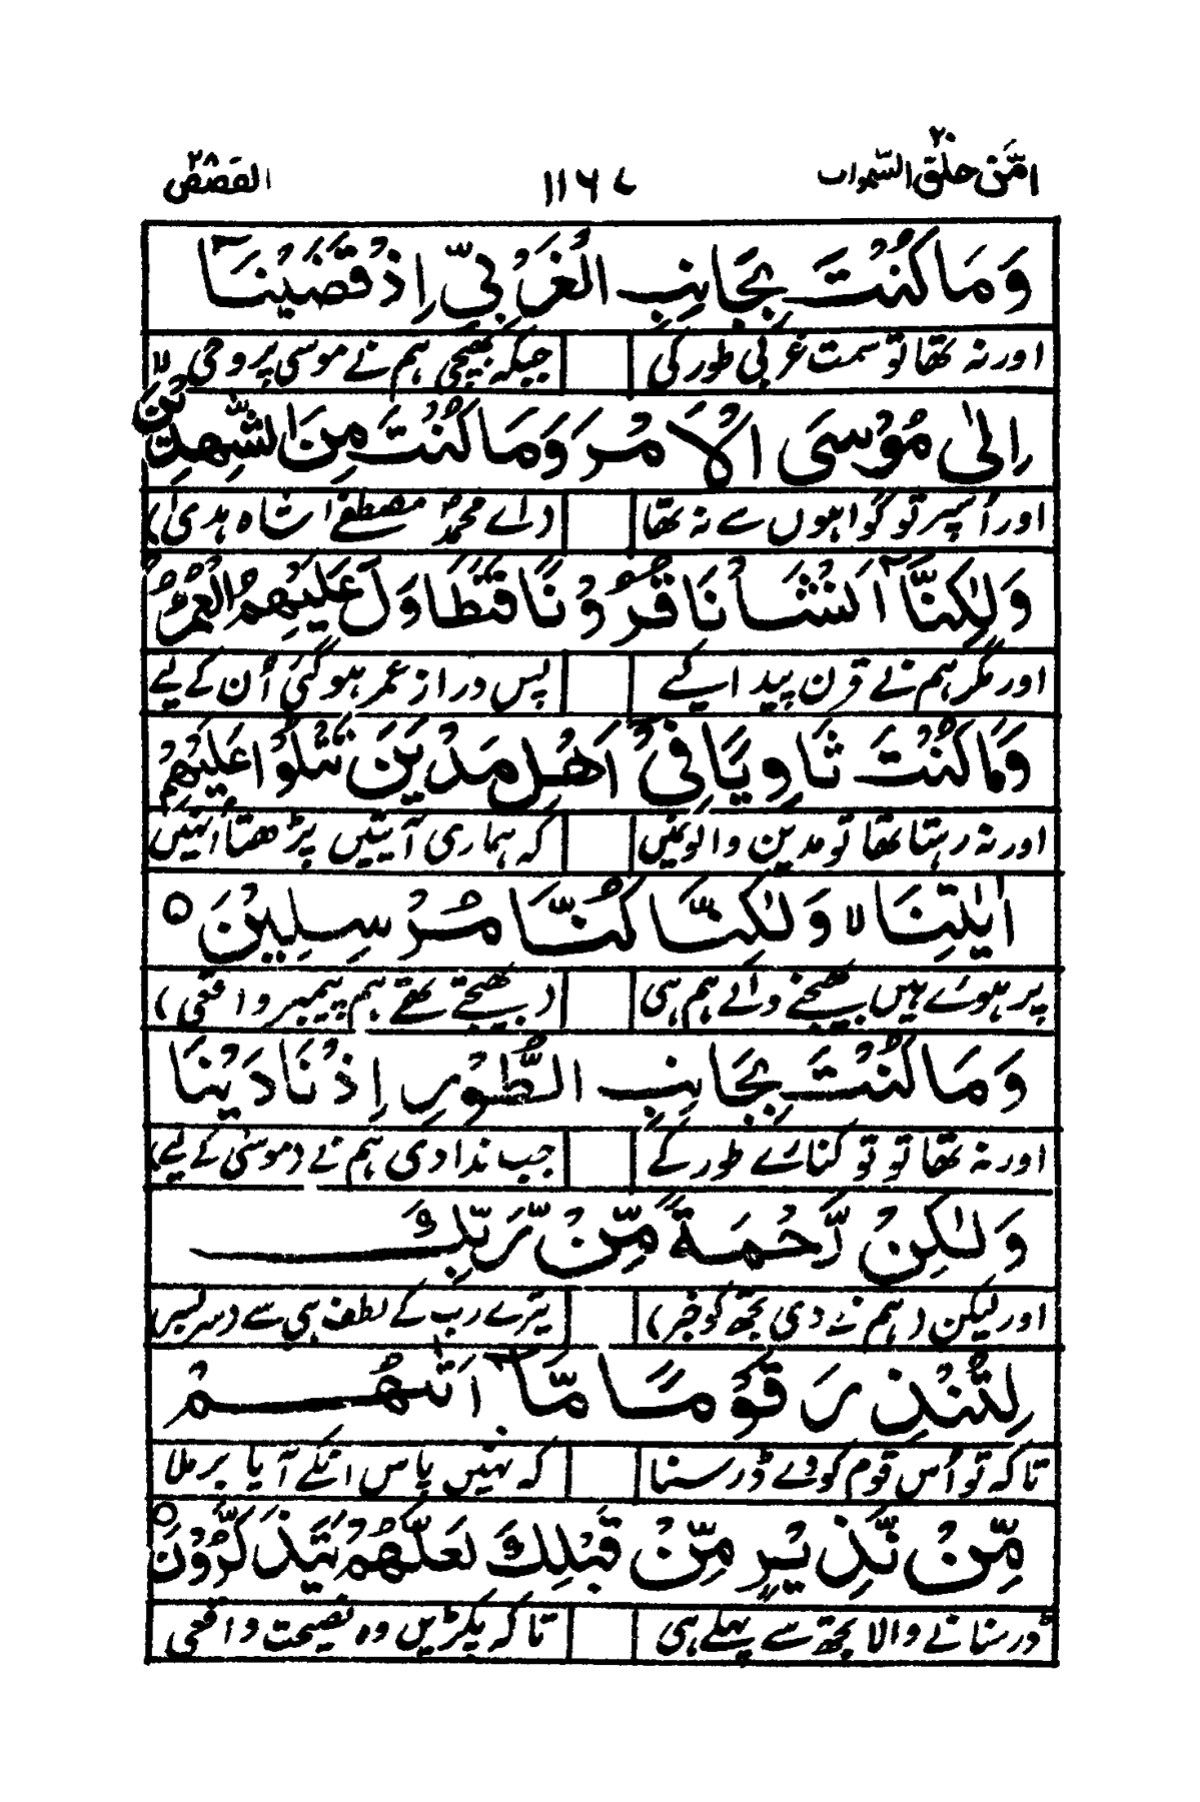 امّن خلق السّمٰوات ٢٠ ١١٦٧ القصص ٢٨
وَمَا كُنْتَ بِجَانِبِ الْغَرْبِيِّ اِذْ قَضَيْنَآ
اور نہ تھا تو سمت غربی طور کی جبکہ بھیجی ہم نے موسی پر وحی
اِلٰى مُوْسَى الْاَمْرَ وَمَا كُنْتَ مِنَ الشّٰهِدِيْنَ ۙ
اور اُسپر تو گواہوں سے نہ تھا (اے محمدؐ مصطفےٰ شاہ ہدیٰ)
وَلٰكِنَّآ اَنْشَاْنَا قُرُوْنًا فَتَطَاوَلَ عَلَيْهِمُ الْعُمُرُ ۚ
اور مگر ہم نے قرن پیدا کیے پس دراز عمر ہو گئی اُن کے لیے
وَمَا كُنْتَ ثَاوِيًا فِيْٓ اَهْلِ مَدْيَنَ تَتْلُوْا عَلَيْهِمْ
اور نہ رہتا تھا تو مدین والونمیں کہ ہماری آیتیں پڑھتا اُنہیں
اٰيٰتِنَا ۙ وَلٰكِنَّا كُنَّا مُرْسِلِيْنَ ○
پر ہوئے ہیں بھیجنے والے ہم ہی (بھیجتے تھے ہم پیمبر واقعی)
وَمَا كُنْتَ بِجَانِبِ الطُّوْرِ اِذْ نَادَيْنَا
اور نہ تھا تو تو کنارے طور کے جب ندا دی ہم نے (موسیٰ کے لیے)
وَلٰكِنْ رَّحْمَةً مِّنْ رَّبِّكَ
اور لیکن (ہم نے دی تجھ کو خبر) تیرے رب کے لطف ہی سے
لِتُنْذِرَ قَوْمًا مَّآ اَتٰىهُمْ
تاکہ تو اُس قوم کو دے ڈر سنا کہ نہیں پاس انکے آیا برملا
مِّنْ نَّذِيْرٍ مِّنْ قَبْلِكَ لَعَلَّهُمْ يَتَذَكَّرُوْنَ ○
ڈر سنانے والا تجھ سے پہلے ہی تاکہ پکڑیں وہ نصیحت واقعی